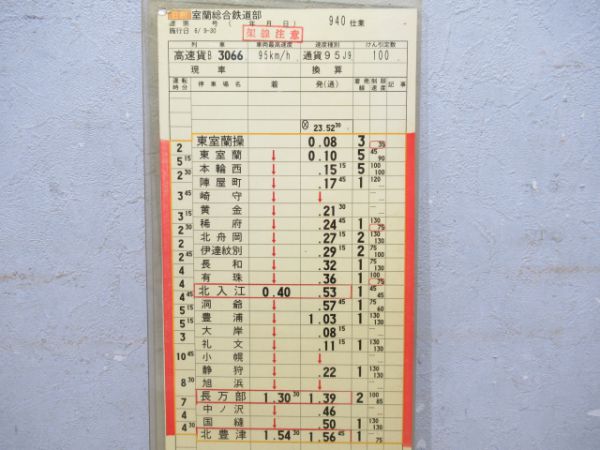 室蘭総合鉄道部
達票 号( 年 月 日) 940 仕業
施行日 6/9-30 架線注意
列車 車両最高速度 速度種別 けん引定数
高速貨B 3066 95km/h 通貨95J9 100
現車 換算
運転時分 停車場名 着 発(通) 着発線 制限速度 記事
23.52 30
東室蘭操 0.08 3 35
2
東室蘭 ↓ 0.10 5 45 90
5 15
本輪西 ↓ .15 15 5 100 100
2 30
陣屋町 ↓ .17 45 1 120
崎守 ↓ ↓
3 45
黄金 ↓ .21 30
3 15
稀府 ↓ .24 45 1 130 75
2 30
北舟岡 ↓ .27 15 2 130 130
2
伊達紋別 ↓ .29 15 2 75 100
2 45
長和 ↓ .32 1 75 130
4
有珠 ↓ .36 1 100 75
4
北入江 0.40 .53 1 45 45
4 45
洞爺 ↓ .57 45 1 75 60
5 15
豊浦 ↓ 1.03 1 130 130
5
大岸 ↓ .08 15
3
礼文 ↓ .11 15 1 130 130
小幌 ↓ ↓
10 45
静狩 ↓ .22 1 130 130
旭浜 ↓ ↓
8 30
長万部 1.30 30 1.39 2 100 85
7
中ノ沢 ↓ .46
4
国縫 ↓ .50 1 130 130
4 30
北豊津 1.54 30 1.56 45 1 75